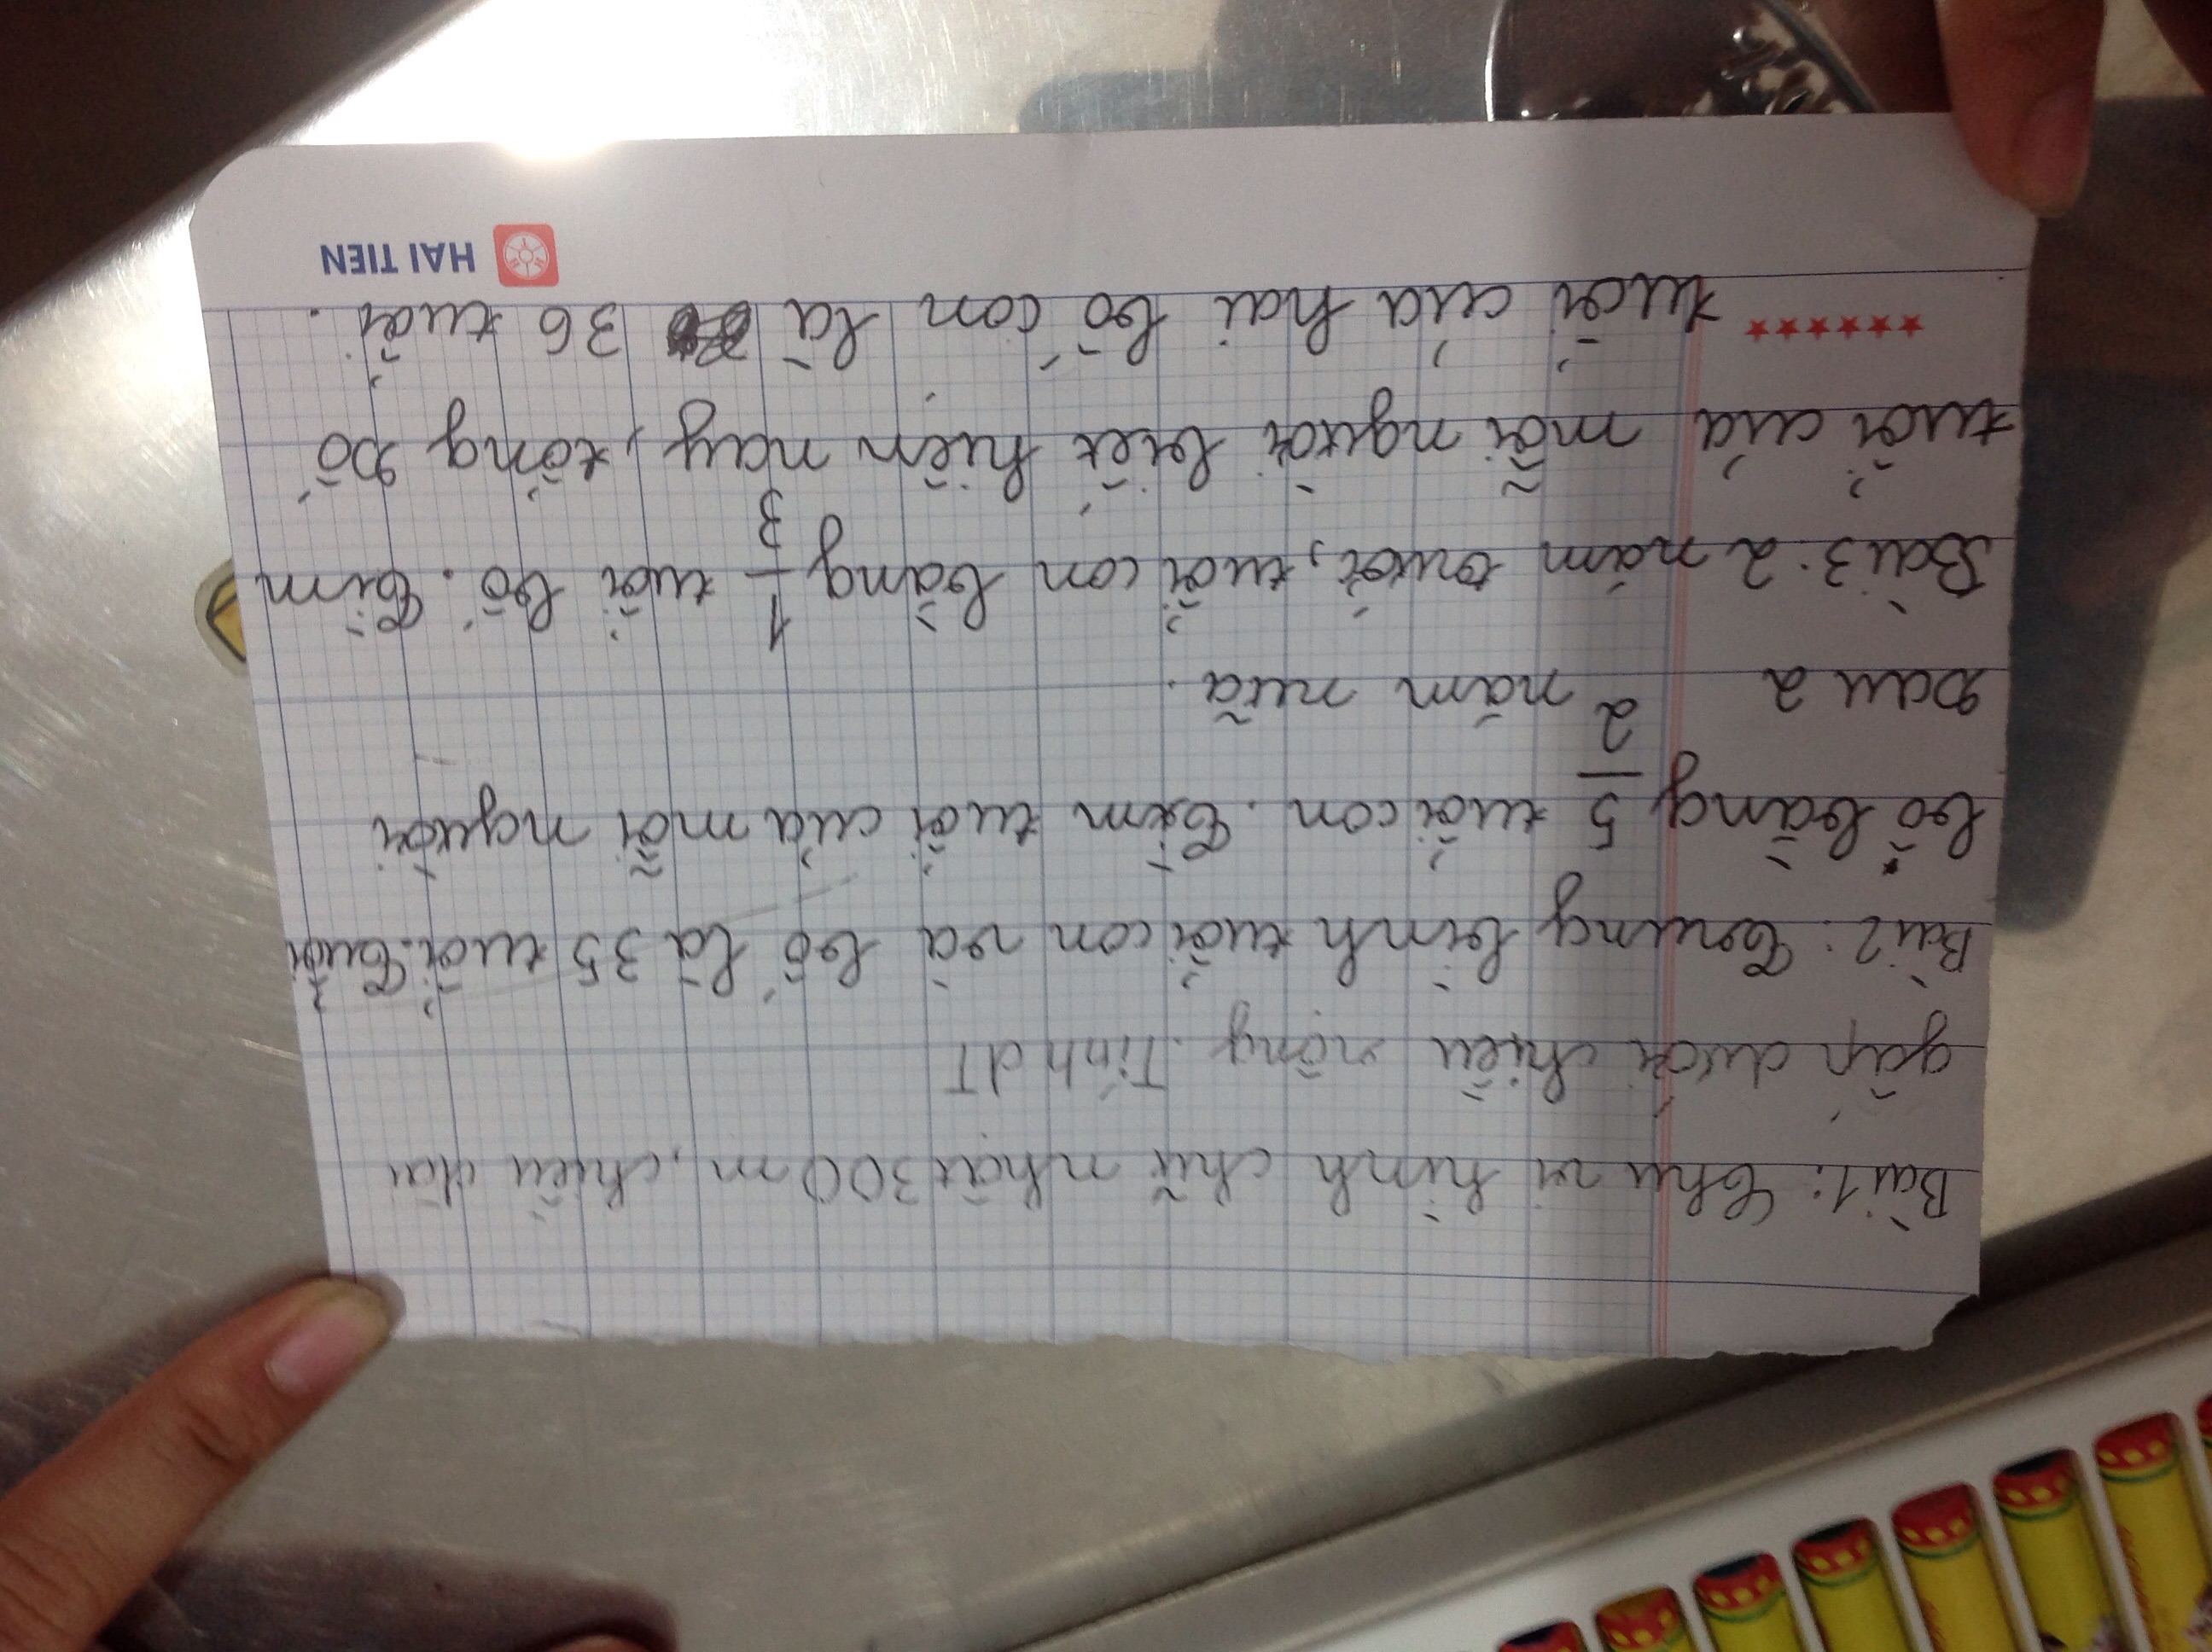 Bài 1: Chu vi hình chữ nhật 300m, chiều dài
gấp dưới chiều rộng. Tính dT
Bài 2: Trung bình tuổi con và bố là 35 tuổi. Tuổi
bố bằng 5/2 tuổi con. Tìm tuổi của mỗi người
sau 2 năm nữa.
Bài 3: 2 năm trước, tuổi con bằng 1/3 tuổi bố. Tìm
tuổi của mỗi người biết hiện nay, tổng số
tuổi của hai bố con là 36 tuổi.
HAI TIEN